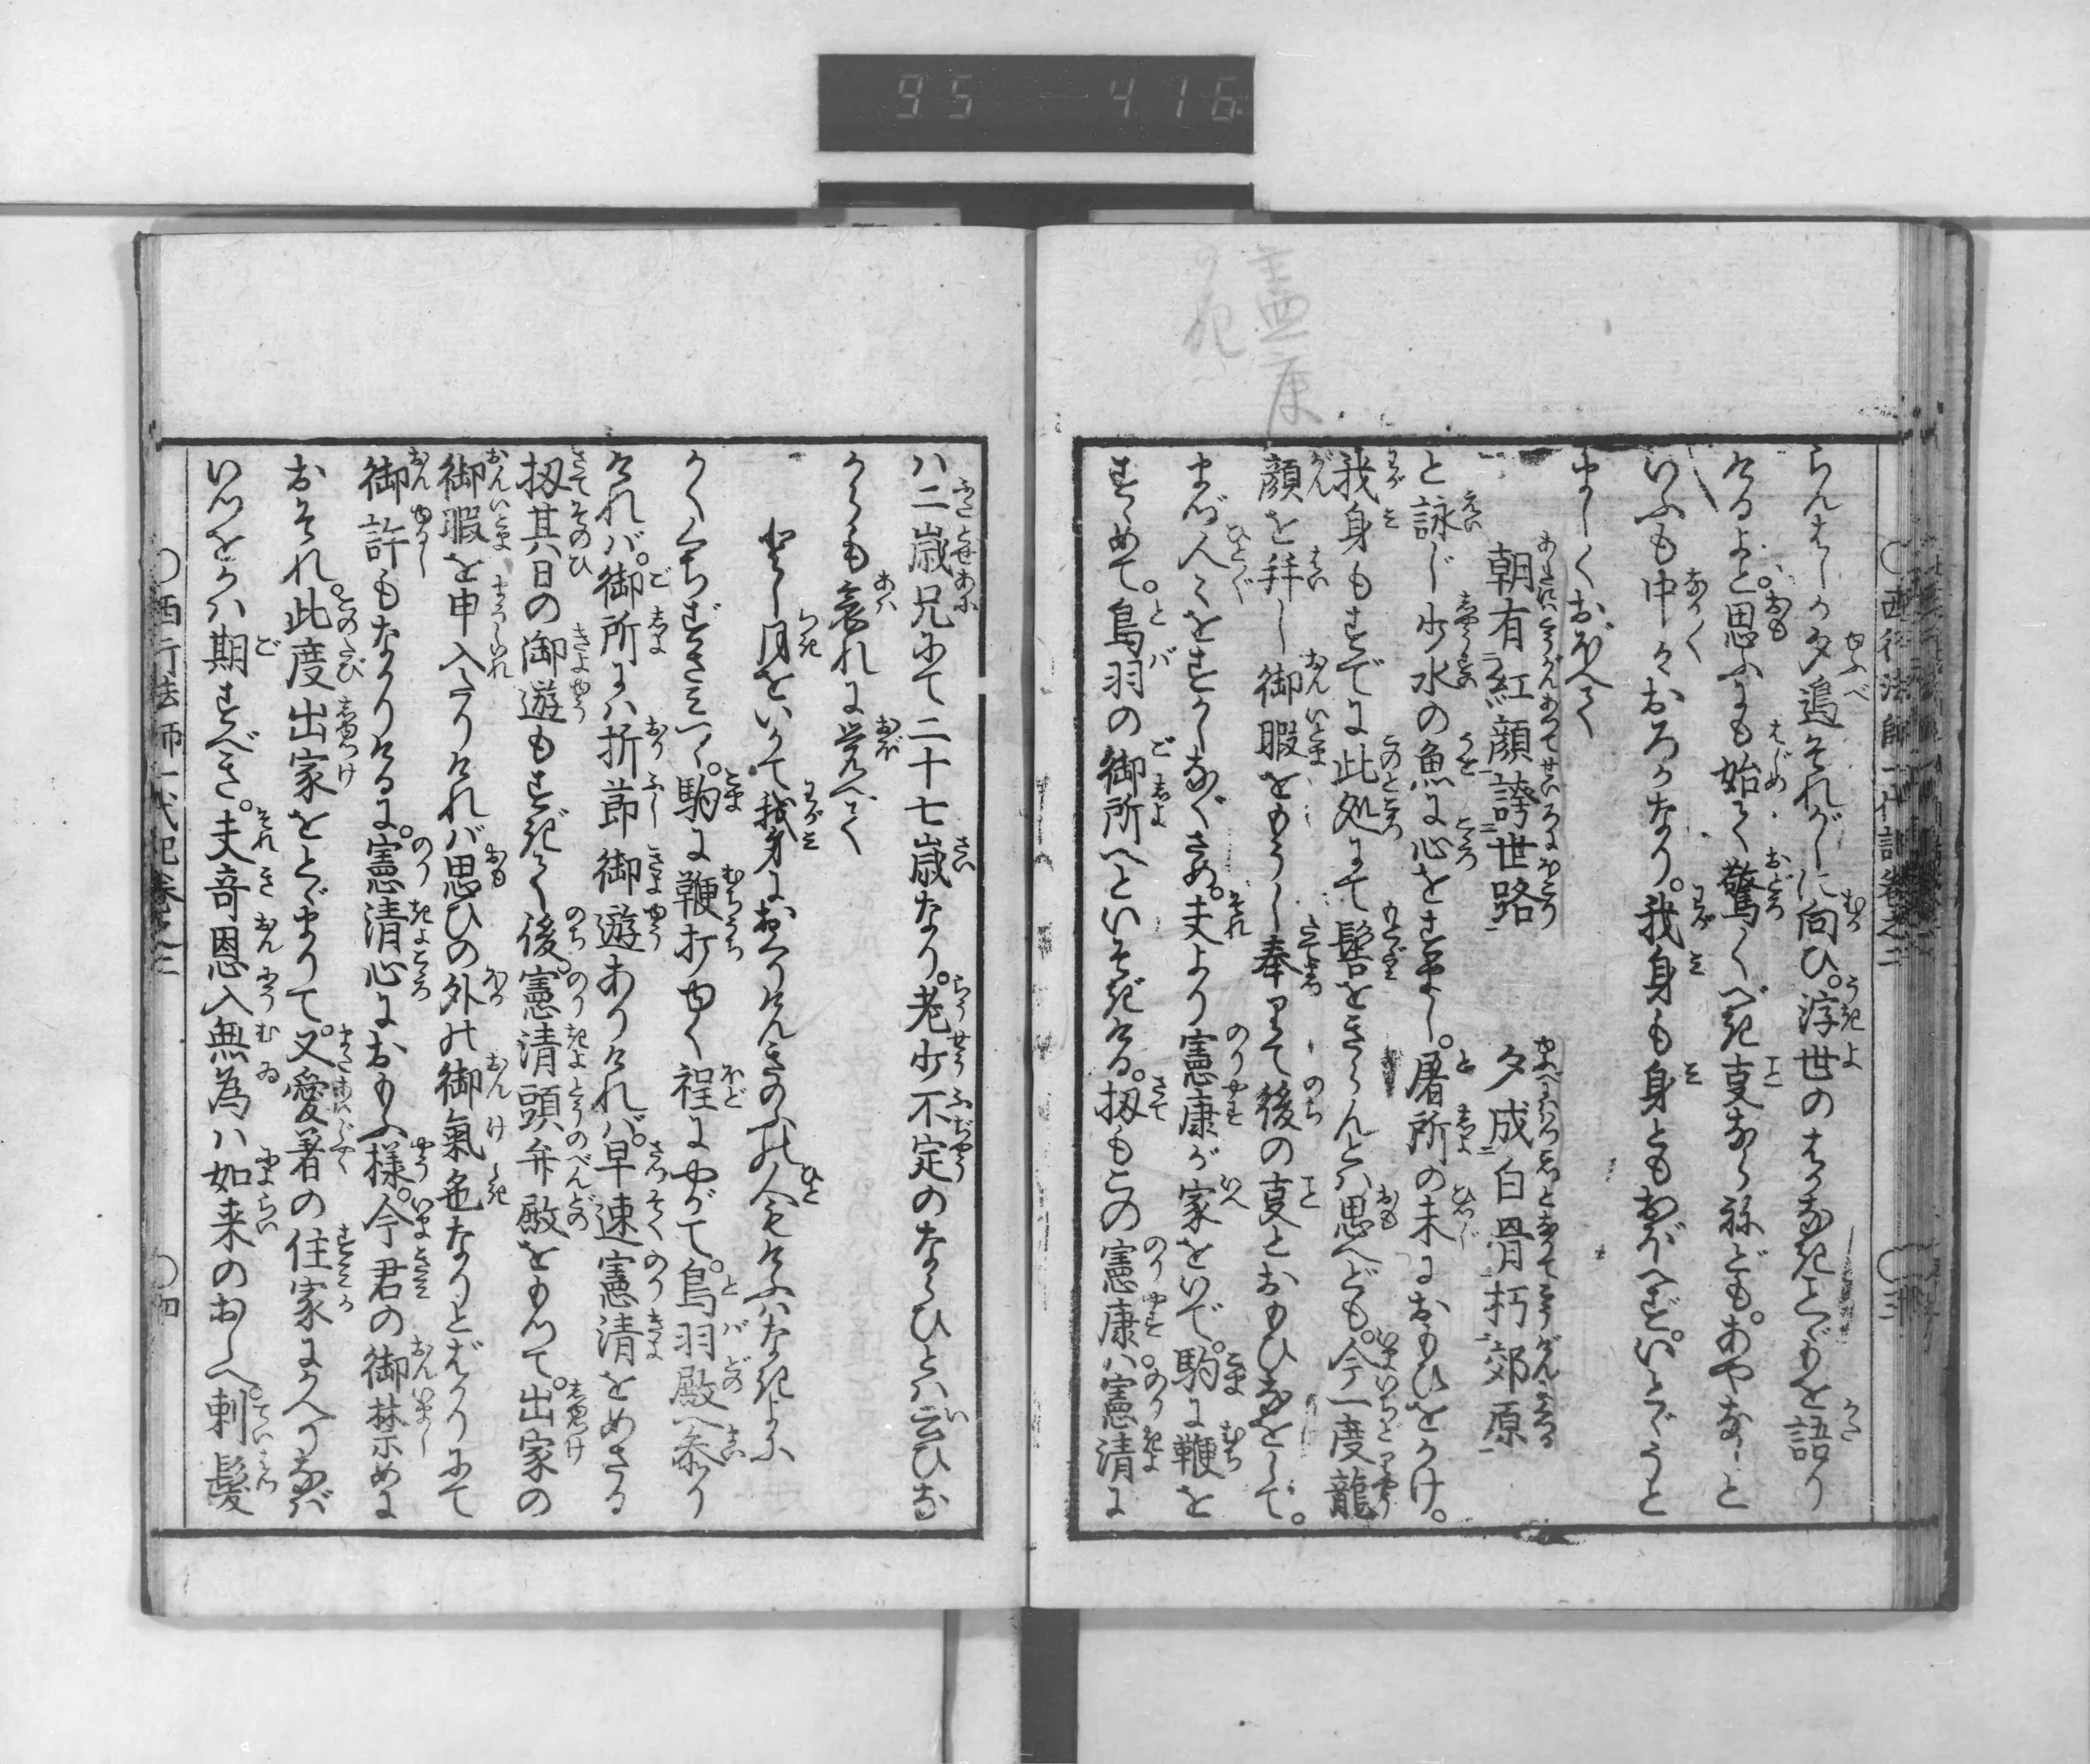 95-416
らんはしか夕追それがしに向ひ。浮世のはかなきことゞもを語り
けるよと。思ふにも始て驚くべき事ならねども。あやなしと
いふも中々おろかなり。我身も身ともおぼへず。いとゞうと
ましくおぼへて
朝有紅顔誇世路 夕成白骨朽郊原
と詠じ少水の魚に心をすまし。屠所の未におもひをかけ。
我身もすでに此処にて髻をきらんとハ思へども。今一度龍
顔を拝し御暇をもうし奉りて後の事とおもひなをして。
まづ人々をすかしなぐさめ。夫より憲康が家をいで。駒に鞭を
すゝめて。鳥羽の御所へといそぎける。扨もこの憲康ハ憲清に
ハ二歳兄にて二十七歳なり。老少不定のならひとハ云ひな
がらも哀れに覚へて
年月をいかで我身におくりけんきのふの人もけふハなきよに
かくくちずさミつゝ。駒に鞭打ゆく程にやがて。鳥羽殿へ参り
けれバ。御所にハ折節御遊ありけれバ。早速憲清をめさる
扨其日の御遊もすぎて後。憲清頭弁殿をもつて。出家の
御暇を申入たりけれバ思ひの外の御氣色なりとばかりにて
御許もなかりけるに。憲清心におもふ様。今君の御禁めに
おそれ。此度出家をとゞまりて。又愛著の住家にかへりなバ
いつをかハ期すべき。夫竒恩入無為ハ如来のおしへ。剃髪
西行法師一代記巻之三 三
西行法師一代記巻之三 四